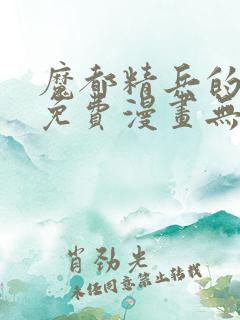 魔都精兵的
免費漫畫無
肖劲光
未经同意禁止转载